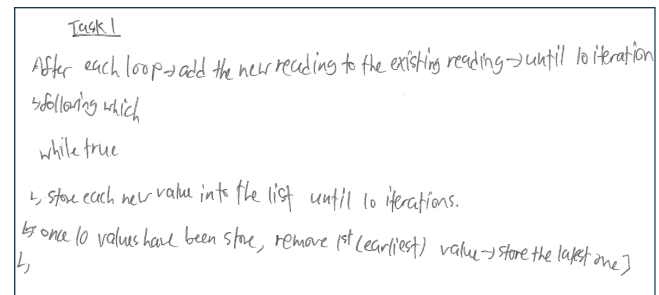 Task 1
After each loop → add the new reading to the existing reading → until 10 iteration
↳ following which
while true
↳ store each new value into the list until 10 iterations.
↳ once 10 values have been store, remove 1st (earliest) value → store the latest one]
↳